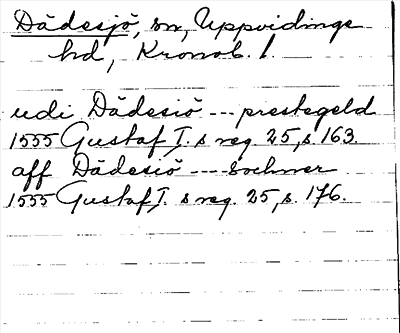 Dädesjö, sn, Uppvidinge
hd, Kronob. l.
udi Dädesiö --- prestegeld
1555 Gustaf I. s reg. 25, s. 163.
aff Dädesiö --- Sochner
1555 Gustaf I. s reg. 25, s. 176.